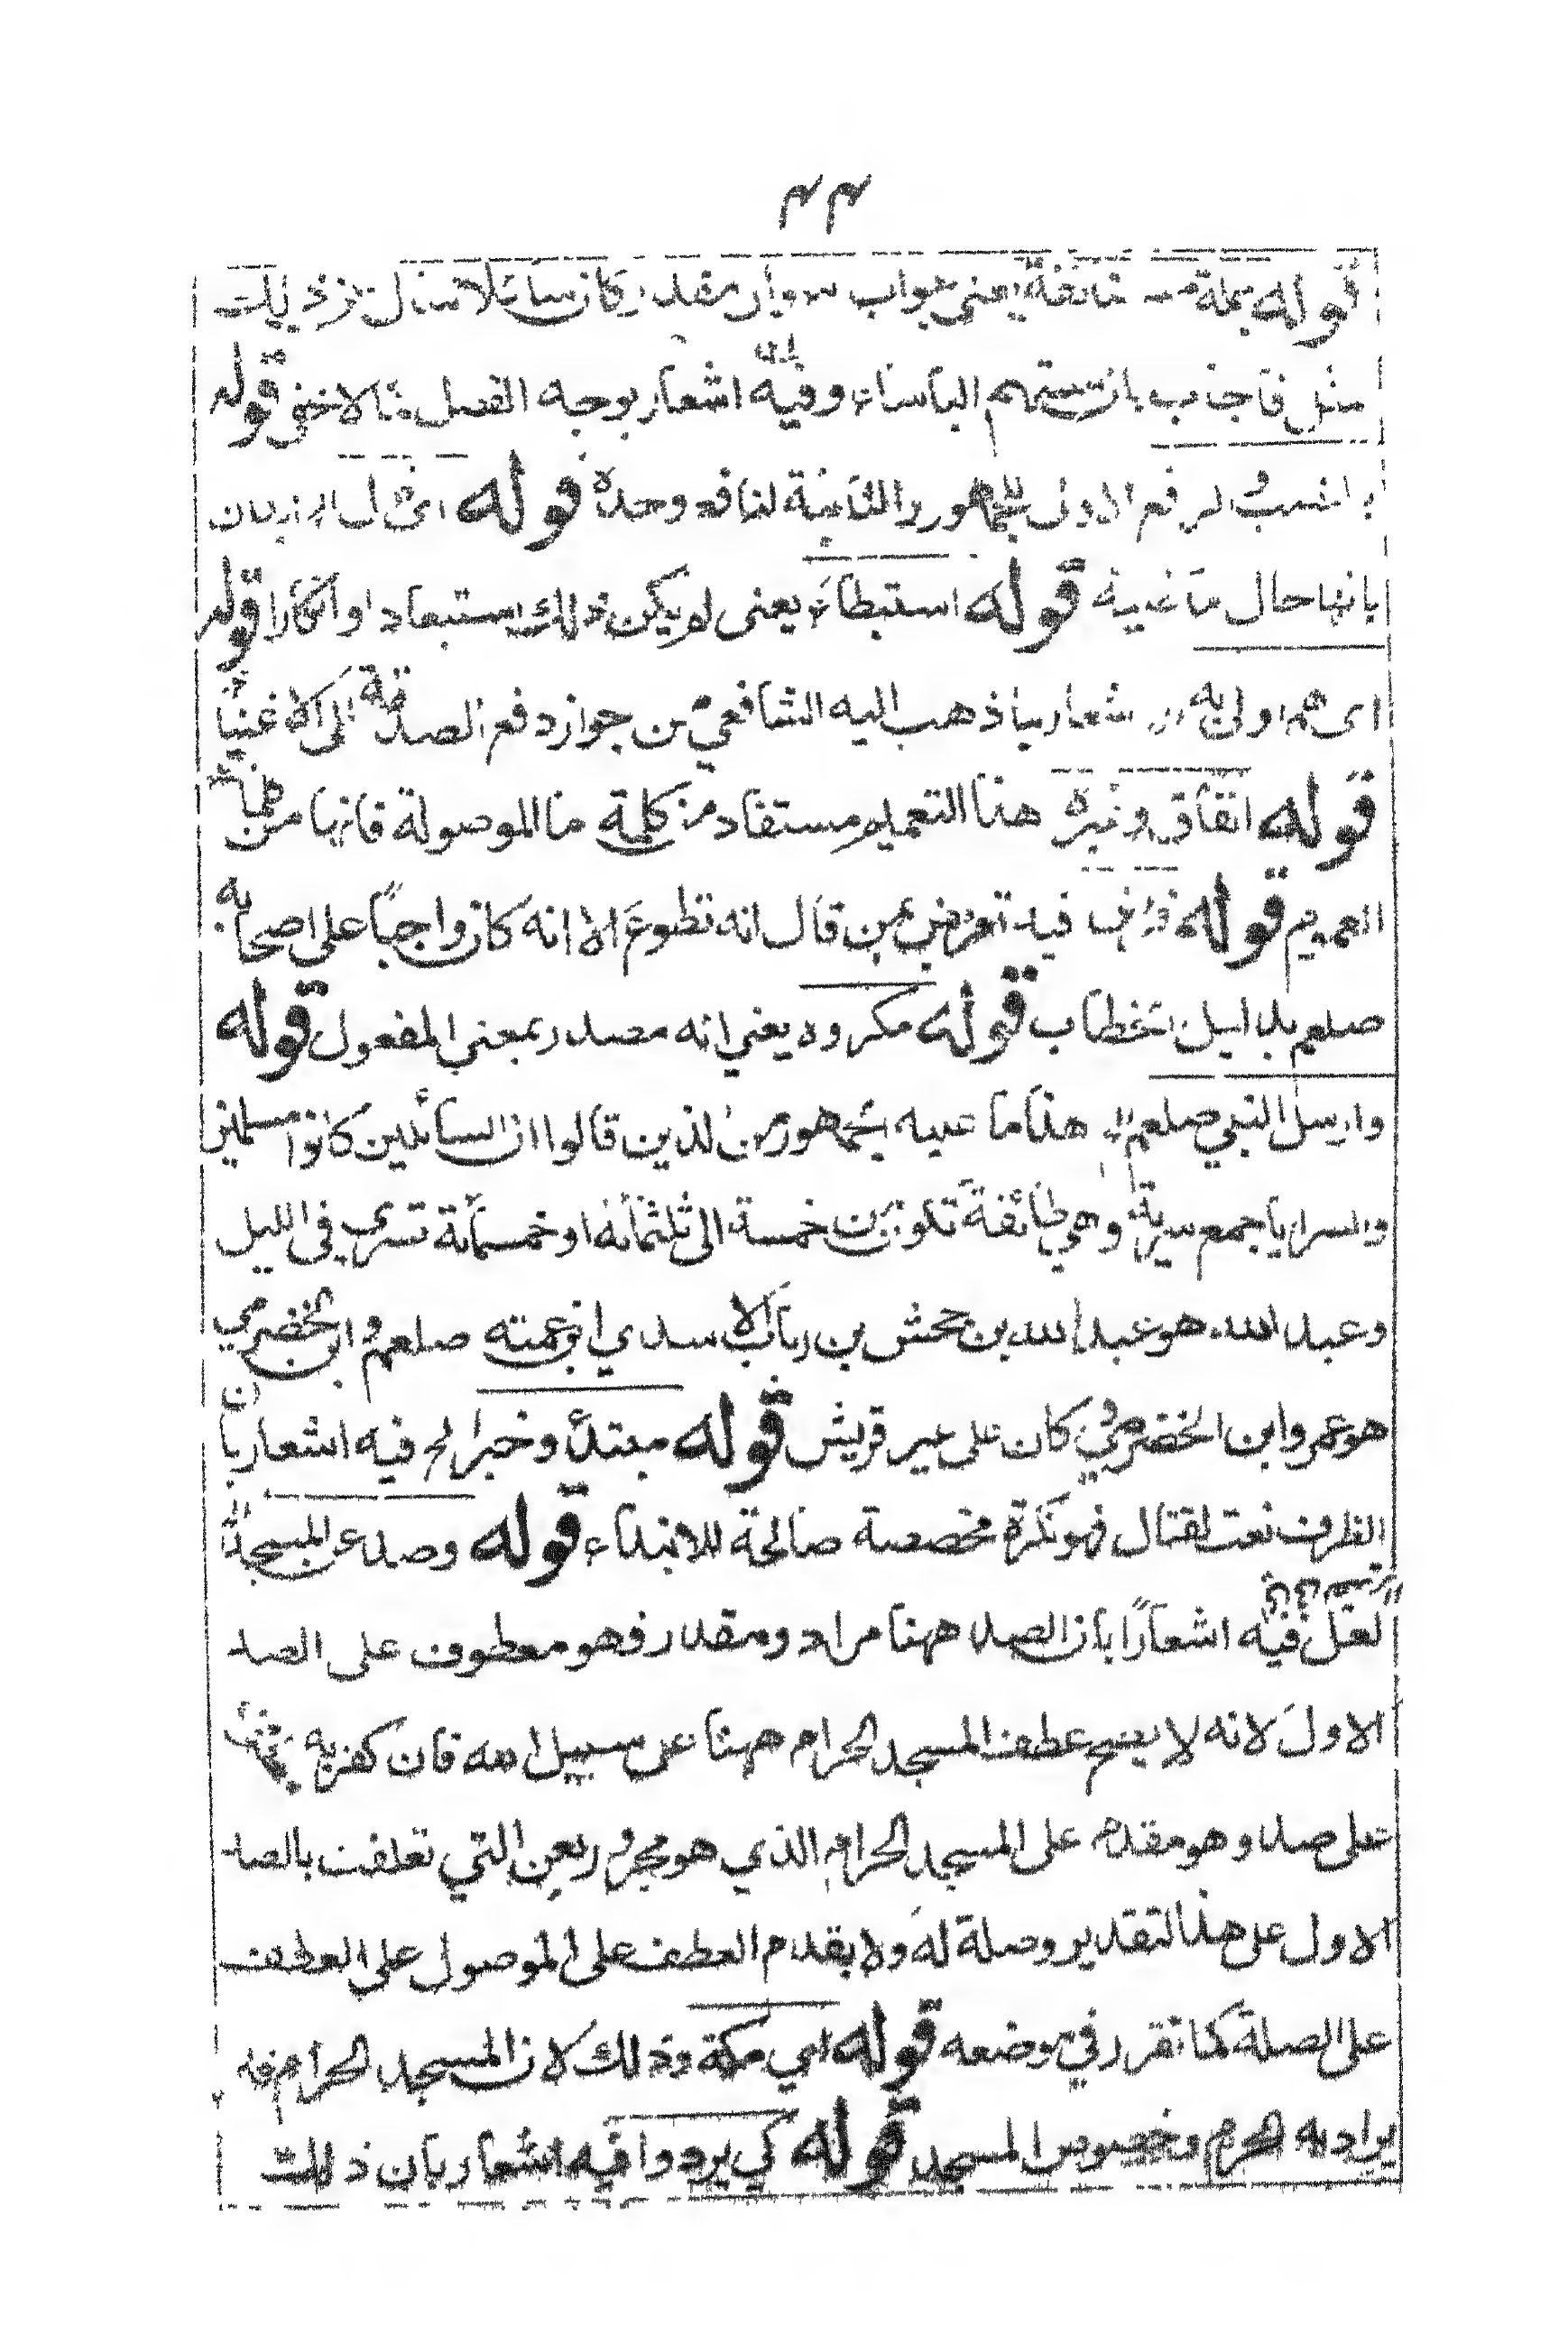 ٤٤
قوله جملة مستانفة يعني جواب سوال مقدر كان سائلا سال عن ذلك
مثل فاجاب بان مستهم الباساء وفيه اشعار بوجه الفصل كما لا يخفى قوله
بالنصب والرفع الاولى للجمهور والثانية لنافع وحده قوله
بانها حال ماضية قوله استبطاء يعني لم يكن ذلك استبعادا وانكارا قوله
اي هم اولى به اشعار بما ذهب اليه الشافعي من جواز دفع الصدقة الى الاغنياء
قوله انفاق وغيره هذا التعميم مستفاد من كلمة ما الموصولة فانها من كلمات
العموم قوله فرض فيه تعريض بمن قال انه تطوع الا انه كان واجبا على اصحابه
صلعم بدليل الخطاب قوله مكروه يعني انه مصدر بمعنى المفعول قوله
وارسل النبي صلعم الخ هذا ما عليه الجمهور من الذين قالوا ان السائلين كانوا مسلمين
والسرايا جمع سرية وهي طائفة تكون من خمسة الى ثلثمائة او خمسمائة تسري في الليل
وعبد الله هو عبد الله بن جحش بن رباب الاسدي ابن عمته صلعم وابن الخضرمي
هو عمرو ابن الخضرمي كان على عير قريش قوله مبتدأ وخبر الخ فيه اشعار بان
الظرف نعت لقتال فهو نكرة مخصصة صالحة للابتداء قوله وصد عن المسجد
لعل فيه اشعارا بان الصد ههنا مراد ومقدر فهو معطوف على الصد
الاول لانه لا يصح عطف المسجد الحرام ههنا على سبيل الله فان كفر به
على صد وهو مقدم على المسجد الحرام الذي هو مجرور بعن التي تعلقت بالصد
الاول على هذا التقدير وصلة له ولا يقدم العطف على الموصول على العطف
على الصلة كما تقرر في موضعه قوله اي مكة وذلك لان المسجد الحرام قد
يراد به الحرم وخصوص المسجد قوله كي يردوا فيه اشعار بان ذلك